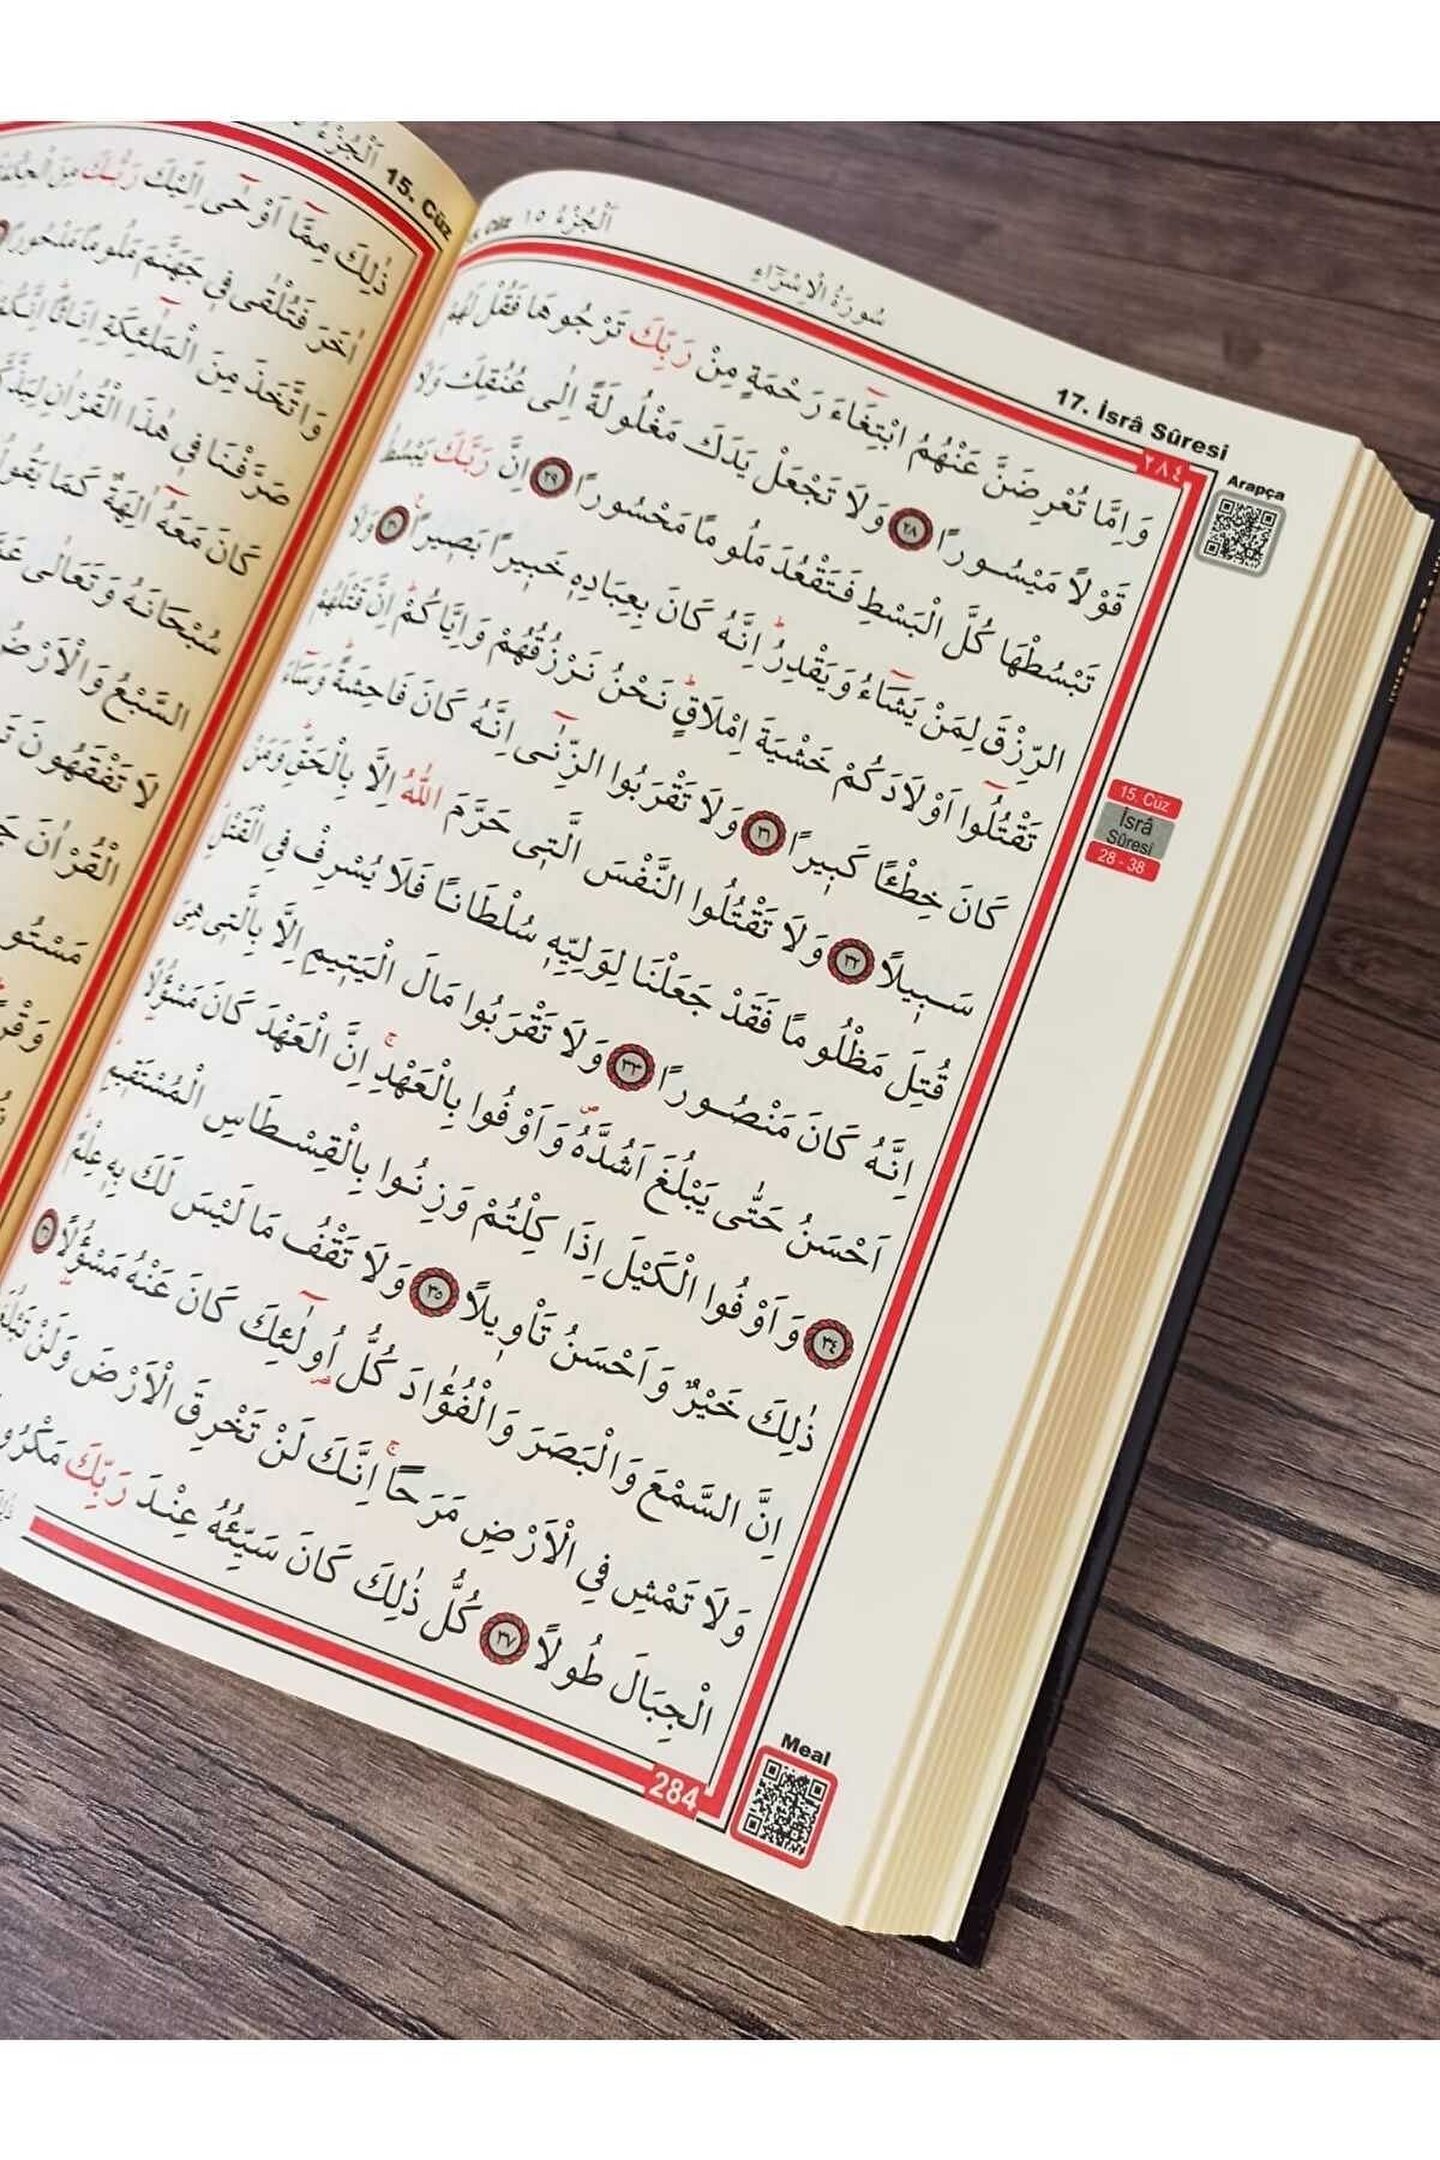 اَلْجُزْءُ ١٥
سُورَةُ الْاِسْرَٓاءِ
17. İsrâ Sûresi
٢٨٤
Arapça
وَاِمَّا تُعْرِضَنَّ عَنْهُمُ ابْتِغَٓاءَ رَحْمَةٍ مِنْ رَبِّكَ تَرْجُوهَا فَقُلْ لَهُمْ
قَوْلًا مَيْسُورًا ٢٨ وَلَا تَجْعَلْ يَدَكَ مَغْلُولَةً اِلٰى عُنُقِكَ وَلَا
تَبْسُطْهَا كُلَّ الْبَسْطِ فَتَقْعُدَ مَلُومًا مَحْسُورًا ٢٩ اِنَّ رَبَّكَ يَبْسُطُ
الرِّزْقَ لِمَنْ يَشَٓاءُ وَيَقْدِرُۜ اِنَّهُ كَانَ بِعِبَادِهِ خَبِيرًا بَصِيرًا ٣٠ وَلَا
تَقْتُلُٓوا اَوْلَادَكُمْ خَشْيَةَ اِمْلَاقٍۜ نَحْنُ نَرْزُقُهُمْ وَاِيَّاكُمْۜ اِنَّ قَتْلَهُمْ
كَانَ خِطْـًٔا كَبِيرًا ٣١ وَلَا تَقْرَبُوا الزِّنٰٓى اِنَّهُ كَانَ فَاحِشَةًۜ وَسَٓاءَ
سَبِيلًا ٣٢ وَلَا تَقْتُلُوا النَّفْسَ الَّتِي حَرَّمَ اللّٰهُ اِلَّا بِالْحَقِّۜ وَمَنْ
قُتِلَ مَظْلُومًا فَقَدْ جَعَلْنَا لِوَلِيِّهِ سُلْطَانًا فَلَا يُسْرِفْ فِي الْقَتْلِۜ
اِنَّهُ كَانَ مَنْصُورًا ٣٣ وَلَا تَقْرَبُوا مَالَ الْيَتِيمِ اِلَّا بِالَّتِي هِيَ
اَحْسَنُ حَتّٰى يَبْلُغَ اَشُدَّهُۖ وَاَوْفُوا بِالْعَهْدِۚ اِنَّ الْعَهْدَ كَانَ مَسْؤُ۫لًا
٣٤ وَاَوْفُوا الْكَيْلَ اِذَا كِلْتُمْ وَزِنُوا بِالْقِسْطَاسِ الْمُسْتَقِيمِۜ
ذٰلِكَ خَيْرٌ وَاَحْسَنُ تَأْوِيلًا ٣٥ وَلَا تَقْفُ مَا لَيْسَ لَكَ بِهِ عِلْمٌۜ
اِنَّ السَّمْعَ وَالْبَصَرَ وَالْفُؤٰادَ كُلُّ اُو۬لٰٓئِكَ كَانَ عَنْهُ مَسْؤُ۫لًا ٣٦
وَلَا تَمْشِ فِي الْاَرْضِ مَرَحًاۚ اِنَّكَ لَنْ تَخْرِقَ الْاَرْضَ وَلَنْ تَبْلُغَ
الْجِبَالَ طُولًا ٣٧ كُلُّ ذٰلِكَ كَانَ سَيِّئُهُ عِنْدَ رَبِّكَ
15. Cüz
İsrâ
Sûresi
28 - 38
284
Meal
اَلْجُزْءُ
15. Cüz
ذٰلِكَ مِمَّٓا اَوْحٰٓى اِلَيْكَ رَبُّكَ مِنَ
اٰخَرَ فَتُلْقٰى فِي جَهَنَّمَ مَلُومًا مَدْحُورًا
وَاتَّخَذَ مِنَ الْمَلٰٓئِكَةِ اِنَاثًاۜ
صَرَّفْنَا فِي هٰذَا الْقُرْاٰنِ
كَانَ مَعَهُٓ اٰلِهَةٌ كَمَا
سُبْحَانَهُ وَتَعَالٰى
السَّبْعُ وَالْاَرْضُ
لَا تَفْقَهُونَ
الْقُرْاٰنَ